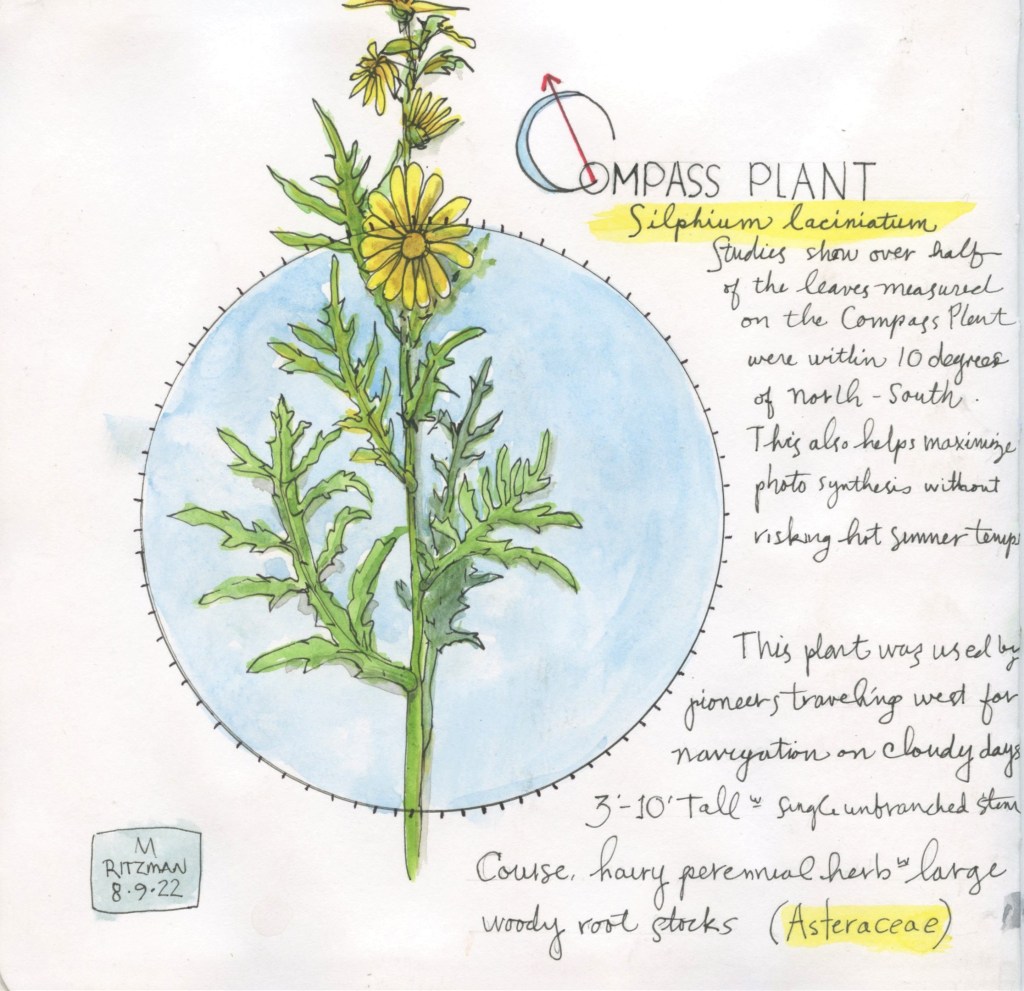 COMPASS PLANT
Silphium laciniatum
Studies show over half
of the leaves measured
on the Compass Plant
were within 10 degrees
of north - South.
This also helps maximize
photo synthesis without
risking hot summer temps
This plant was used by
pioneers traveling west for
navigation on cloudy days
3'-10' Tall w single unbranched stem
Course, hairy perennial herb w large
woody root stocks (Asteraceae)
M
RITZMAN
8.9.22